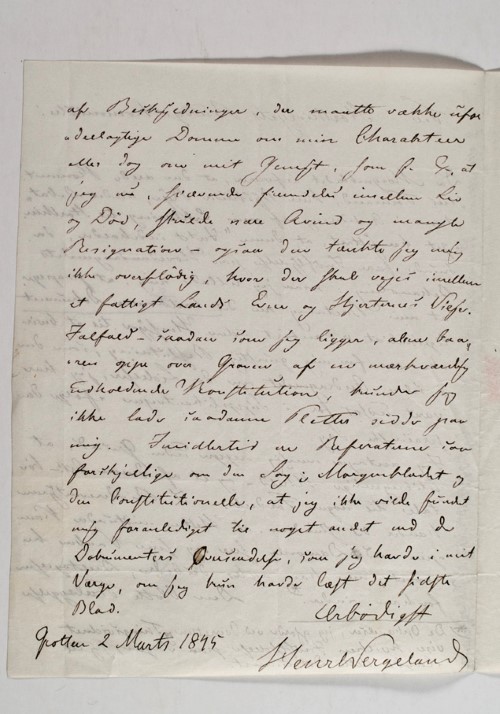 af Beskyldninger, der maatte vække ufor
deelagtige Domme om min Charakteer
eller dog om mit Gemyt, som f. Ex. at
jeg nu, svævende mellem Liv
og Død, skulde nære Avind og mangle
Resignation – ogsaa den tænkte jeg mig
ikke overflødig, hvor der skal vejes imellem
et fattigt Lands Evne og Hjerternes Vilje.
Ialfald – saadan som jeg ligger, alene baa
ren oppe over Graven af en mærkværdig
udholdende Konstitution, kunde jeg
ikke lade saadanne Pletter sidde paa
mig. Imidlertid er Referaterne saa
forskjellige om den Sag i Morgenbladet og
den Constitutionelle, at jeg ikke vilde fundet
mig foranlediget til noget andet end de
Dokumenters Oversendelse, som jeg havde i mit
Værge, om jeg kun havde læst det sidste
Blad.
Ærbødigst
Grotten 2 Marts 1845
Henr Wergeland